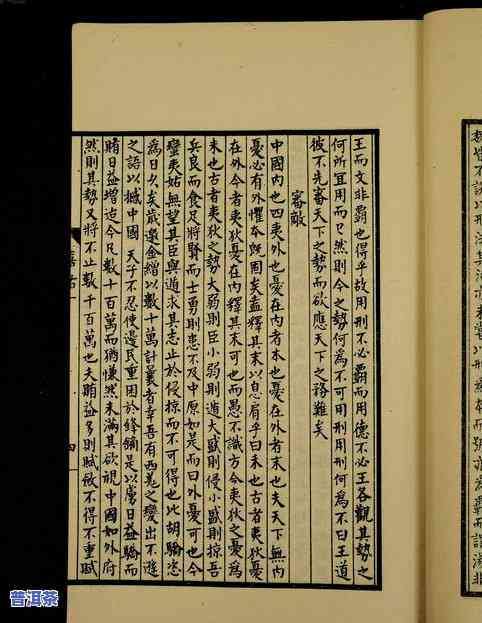 王而文非霸也得乎故用刑不必霸而用德不必王各觀其勢之
何所宜用而已然則今之勢何為不可用刑用刑何為不曰王道
彼不先審天下之勢而欲應天下之務難矣
審敵
中國內也四夷外也憂在內者本也憂在外者末也夫天下無內
憂必有外懼本既固矣盍釋其末以息肩乎曰未也古者夷狄憂
在外今者夷狄憂在內釋其末可也而愚不識方今夷狄之憂為
末也古者夷狄之勢大弱則臣小弱則遁大盛則侵小盛則掠吾
兵良而食足將賢而士勇則患不及中原如是而曰外憂可也今
蠻夷姑無望其臣與遁求其志止於侵掠而不可得也北胡驕恣
為日久矣歲邀金繒以數十萬計曩者幸吾有西羌之變出不遜
之語以撼中國天子不忍使邊民重困於鋒鏑是以虜日益驕而
賄日益增迨今凡數十百萬而猶慊然未滿其欲視中國如外府
然則其勢又將不止數千百萬也夫賄益多則賦斂不得不重賦
四
普洱茶